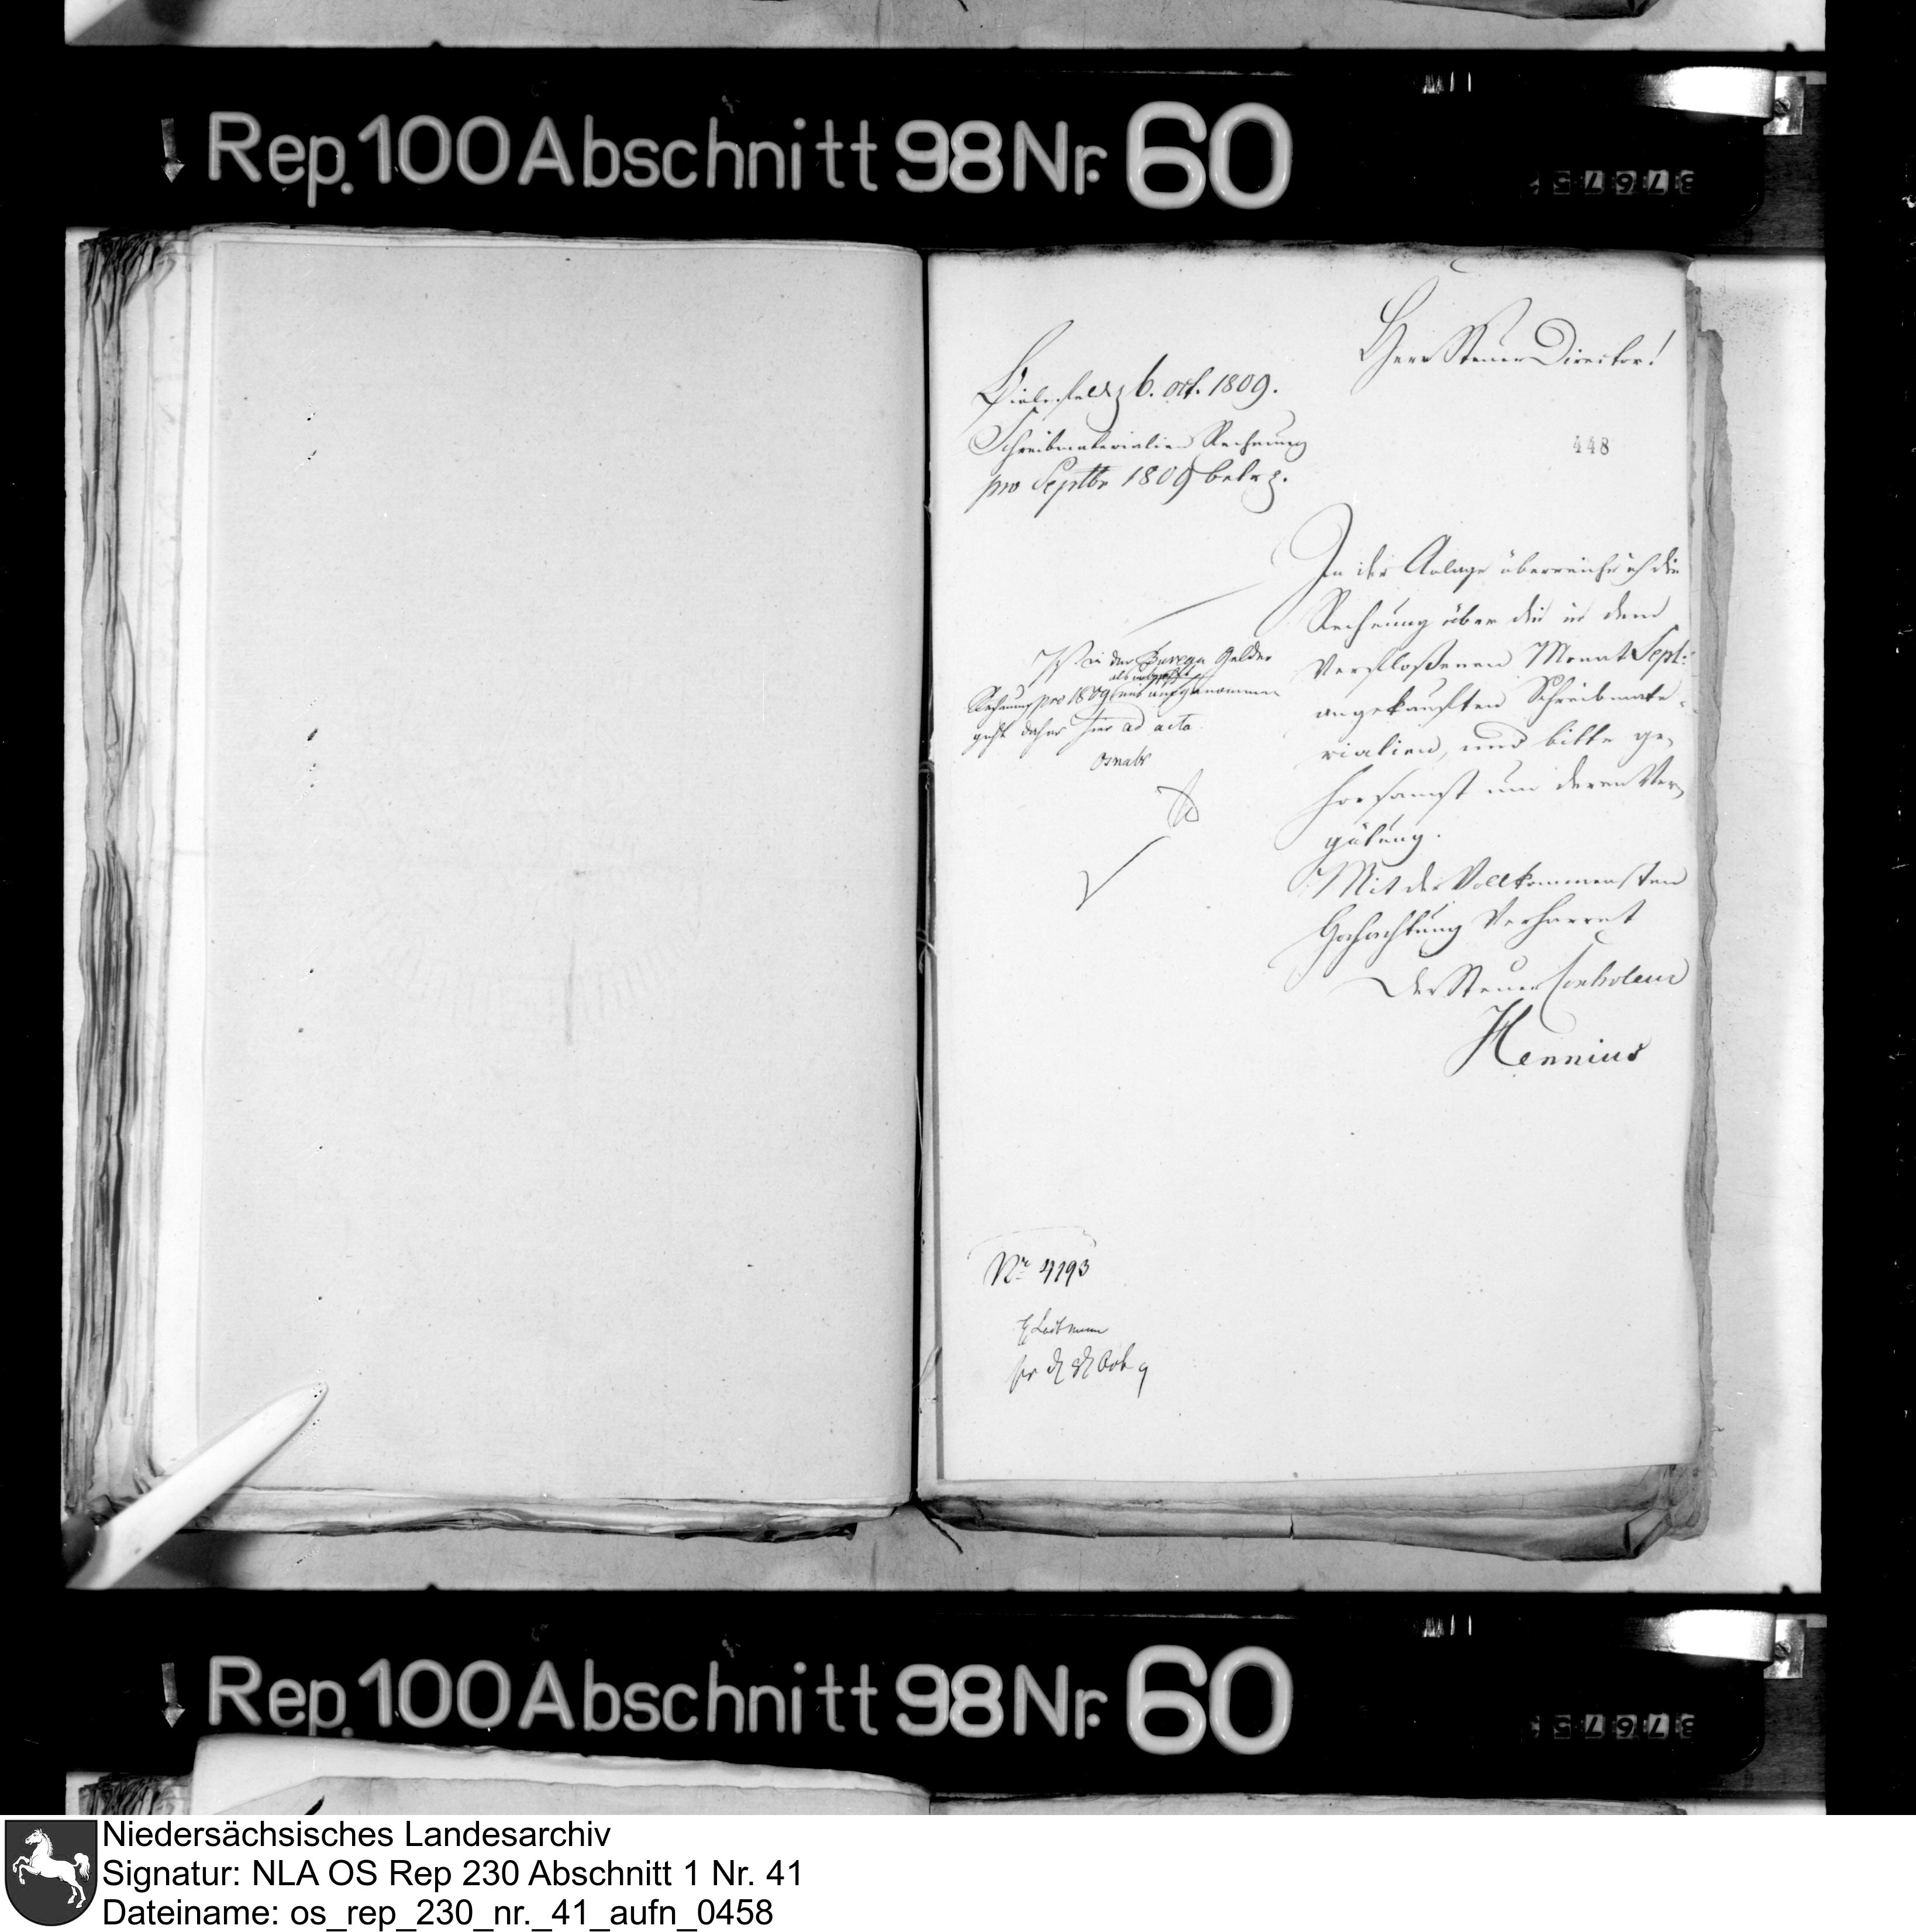 Rep. 100 Abschnitt 98 Nr. 60
Herr Steuer Director!
Bielefeld, 6. oct. 1809.
Schreibmaterialien Rechnung
pro Septbr 1809 betr.
448
In der Anlage überreiche ich die
Rechnung über die in dem
Verfloßenen Monat Sept:
angekauften Schreibmate-
rialien, und bitte ge-
horsamst um deren Ver-
gütung.
Mit der Vollkommensten
Hochachtung Verharret
Der Steuer Controleur
Hennius
Ist in der Bureau Gelder
Rechnung pro 1809 mit aufgenommen
geht daher hier ad acta
Osnabr
Nr 4193
Rep. 100 Abschnitt 98 Nr. 60
Niedersächsisches Landesarchiv
Signatur: NLA OS Rep 230 Abschnitt 1 Nr. 41
Dateiname: os_rep_230_nr._41_aufn_0458